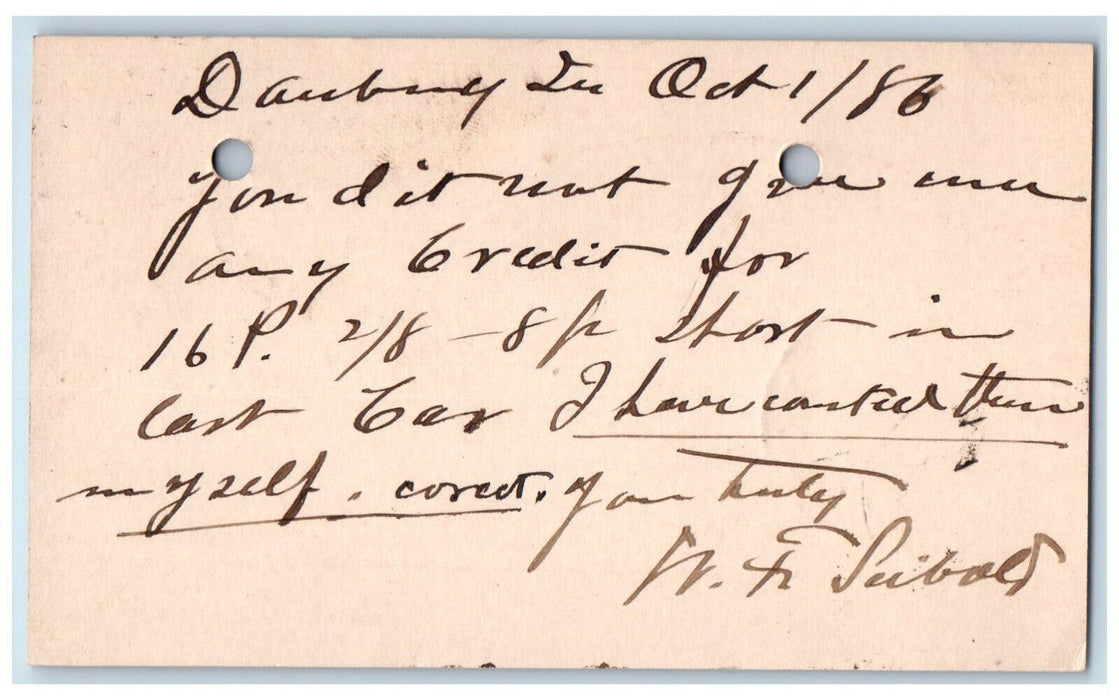 Danbury Oct 1/86
you dit not give me
any Credit for
16 P. 2/8 - 8 ft short in
last Car I have counted them
myself. corect. your truly
W. F. Seibold